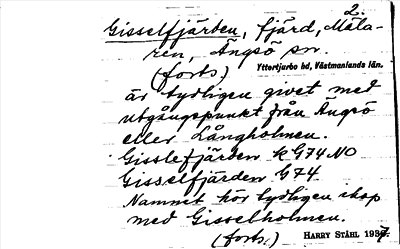 2.
Gisselfjärden, fjärd, Mäla-
ren, Ängsö sn.
(forts) Yttertjurbo hd, Västmanlands län.
är tydligen givet med
utgångspunkt från Ängsö
eller Långholmen.
Gisslefjärden k G74 NO
Gisselfjärden G74.
Namnet hör tydligen ihop
med Gisselholmen.
(forts.) HARRY STÅHL 1937.